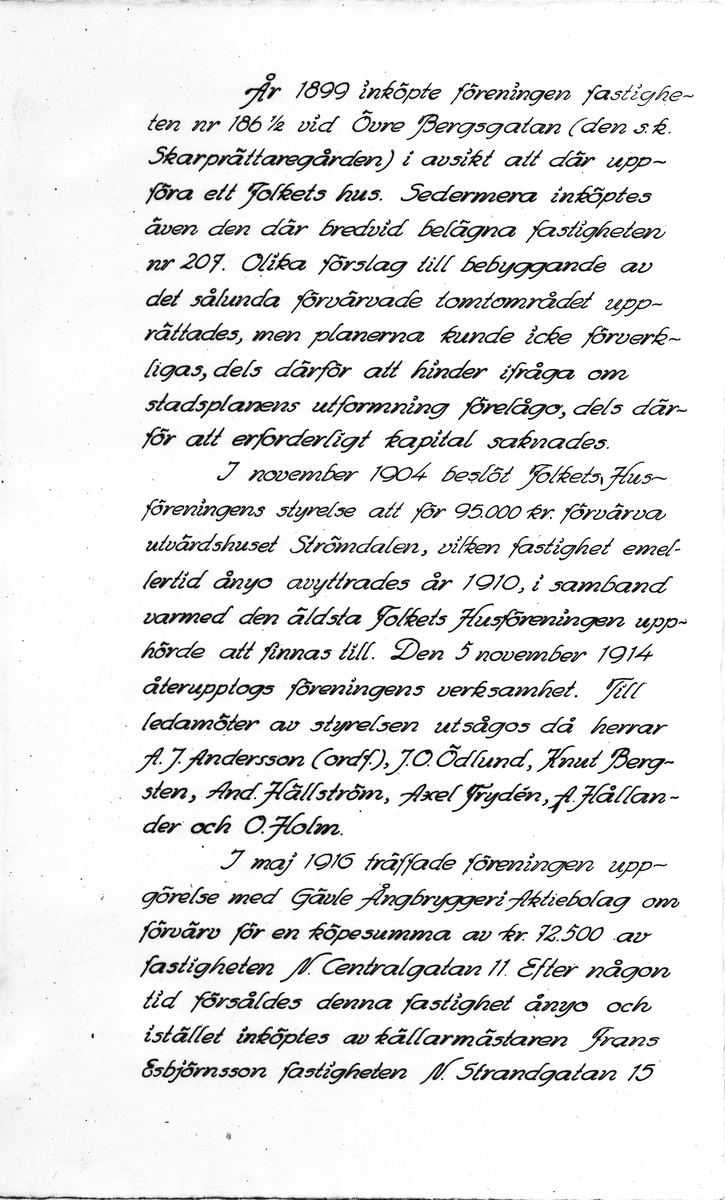 År 1899 inköpte föreningen fastighe~
ten nr 186 ½ vid Övre Bergsgatan (den s.k.
Skarprättaregården) i avsikt att där upp~
föra ett Folkets hus. Sedermera inköptes
även den där bredvid belägna fastigheten
nr 207. Olika förslag till bebyggande av
det sålunda förvärvade tomtområdet upp~
rättades, men planerna kunde icke förverk~
ligas, dels därför att hinder ifråga om
stadsplanens utformning förelågo, dels där~
för att erforderligt kapital saknades.
I november 1904 beslöt Folkets Hus~
föreningens styrelse att för 95.000 kr. förvärva
utvärdshuset Strömdalen, vilken fastighet emel-
lertid ånyo avyttrades år 1910, i samband
varmed den äldsta Folkets Husföreningen upp~
hörde att finnas till. Den 5 november 1914
återupptogs föreningens verksamhet. Till
ledamöter av styrelsen utsågos då herrar
A. J. Andersson (ordf.), J. O. Ödlund, Knut Berg~
sten, And. Hällström, Axel Frydén, A. Hållan~
der och O. Holm.
I maj 1916 träffade föreningen upp~
görelse med Gävle Ångbryggeri Aktiebolag om
förvärv för en köpesumma av kr. 72.500 av
fastigheten N. Centralgatan 11. Efter någon
tid försåldes denna fastighet ånyo och
istället inköptes av källarmästaren Frans
Esbjörnsson fastigheten N. Strandgatan 15